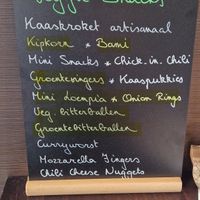 Veggie Snacks
Kaaskroket artisanaal
Kipkorn * Bami
Mini Snacks * Chick. in. Chili
Groentevingers * Kaaspukkies
Mini Loempia * Onion Rings
Veg. bitterballen
Groentebitterballen
Curryworst
Mozzarella Fingers
Chili Cheese Nuggets